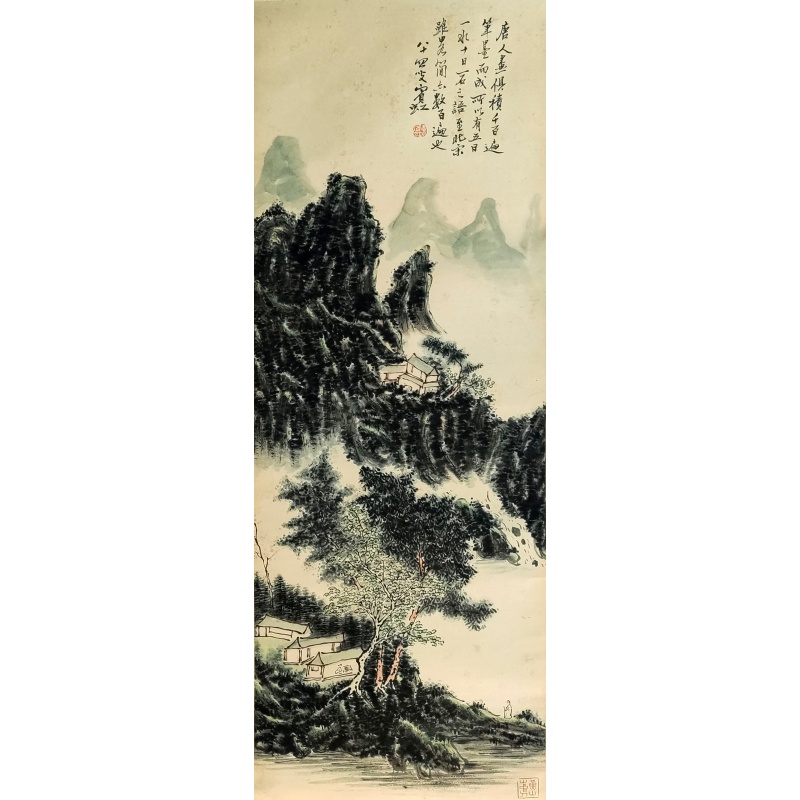 唐人畫俱積千百遍
筆墨而成所以有五日
一水十日一石之語至北宋
雖畧簡亦數百遍也
八十四叟賓虹